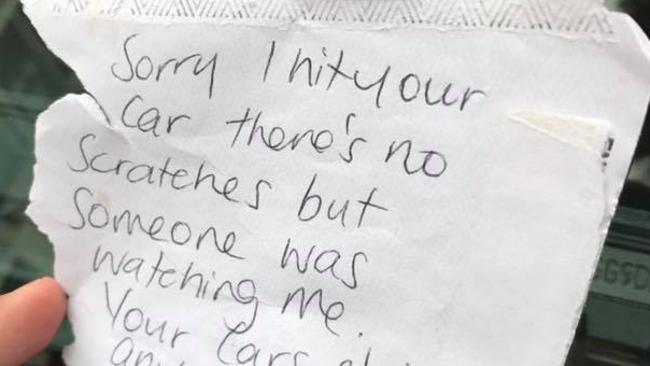 Sorry I hit your
car there's no
scratches but
someone was
watching me.
Your cars